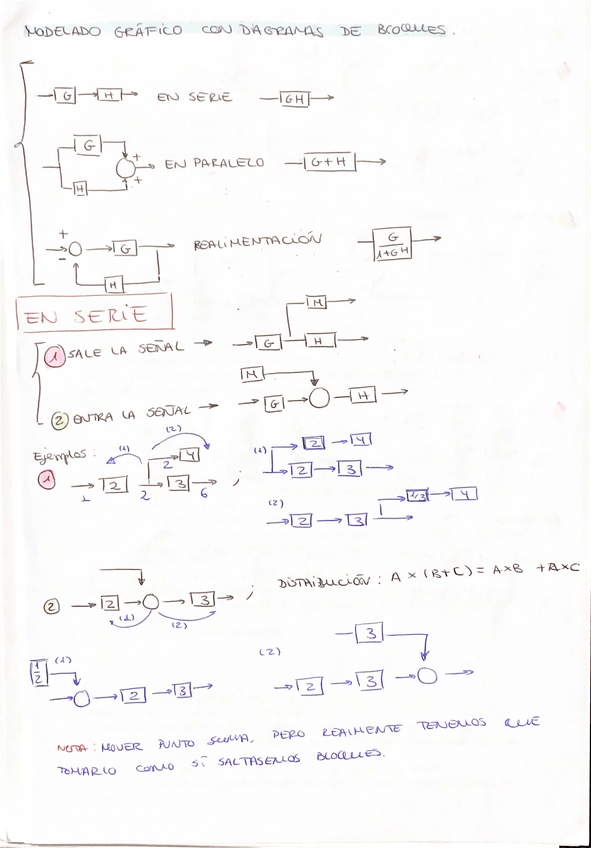 MODELADO GRÁFICO CON DIAGRAMAS DE BLOQUES.
G H EN SERIE GH
G
+
+ EN PARALELO G+H
H
+
- G REALIMENTACIÓN G
1+GH
H
EN SERIE
M
1 SALE LA SEÑAL G H
M
2 ENTRA LA SEÑAL G H
Ejemplos: (1) (2) (1) 2 4
4
1 1 2 2 2 3 6 ; 2 3
(2) 1/3 4
2 3
2 2 3 ; DISTRIBUCIÓN: A × (B+C) = A×B + A×C
(1) (2)
1/2 (1) (2) 3
2 3 2 3
NOTA: MOVER PUNTO SUMA, PERO REALMENTE TENEMOS QUE
TOMARLO COMO SI SALTASEMOS BLOQUES.